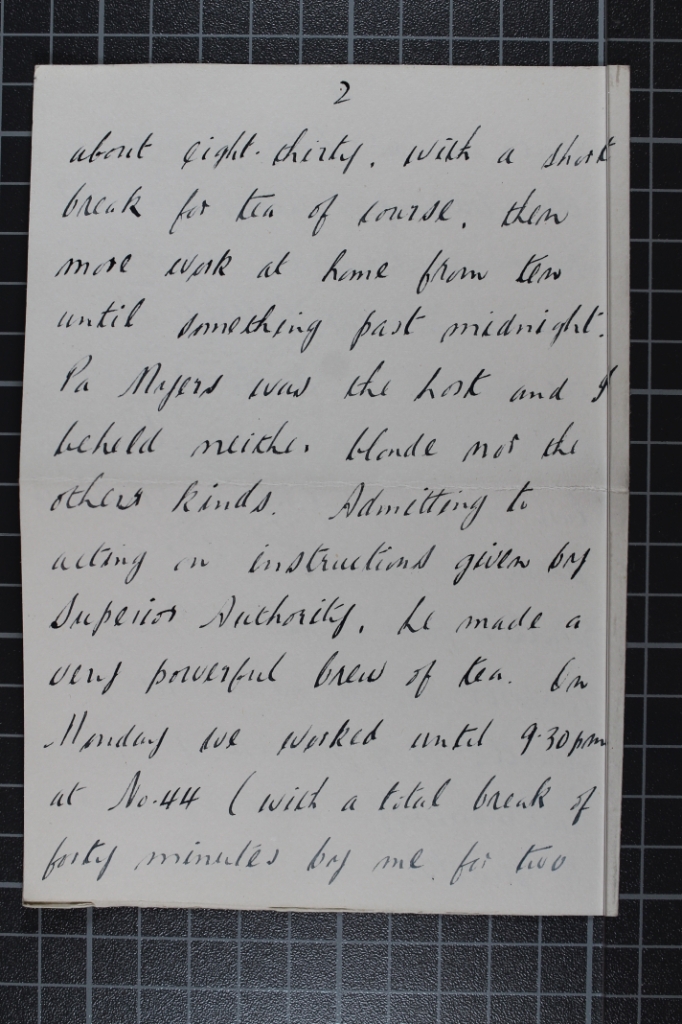 2
about eight-thirty, with a short
break for tea of course, then
more work at home from ten
until something past midnight.
Pa Myers was the host and I
beheld neither blonde nor the
others kinds. Admitting to
acting on instructions given by
Superior Authority, he made a
very powerful brew of tea. On
Monday we worked until 9.30pm
at No.44 (with a total break of
forty minutes by me for two